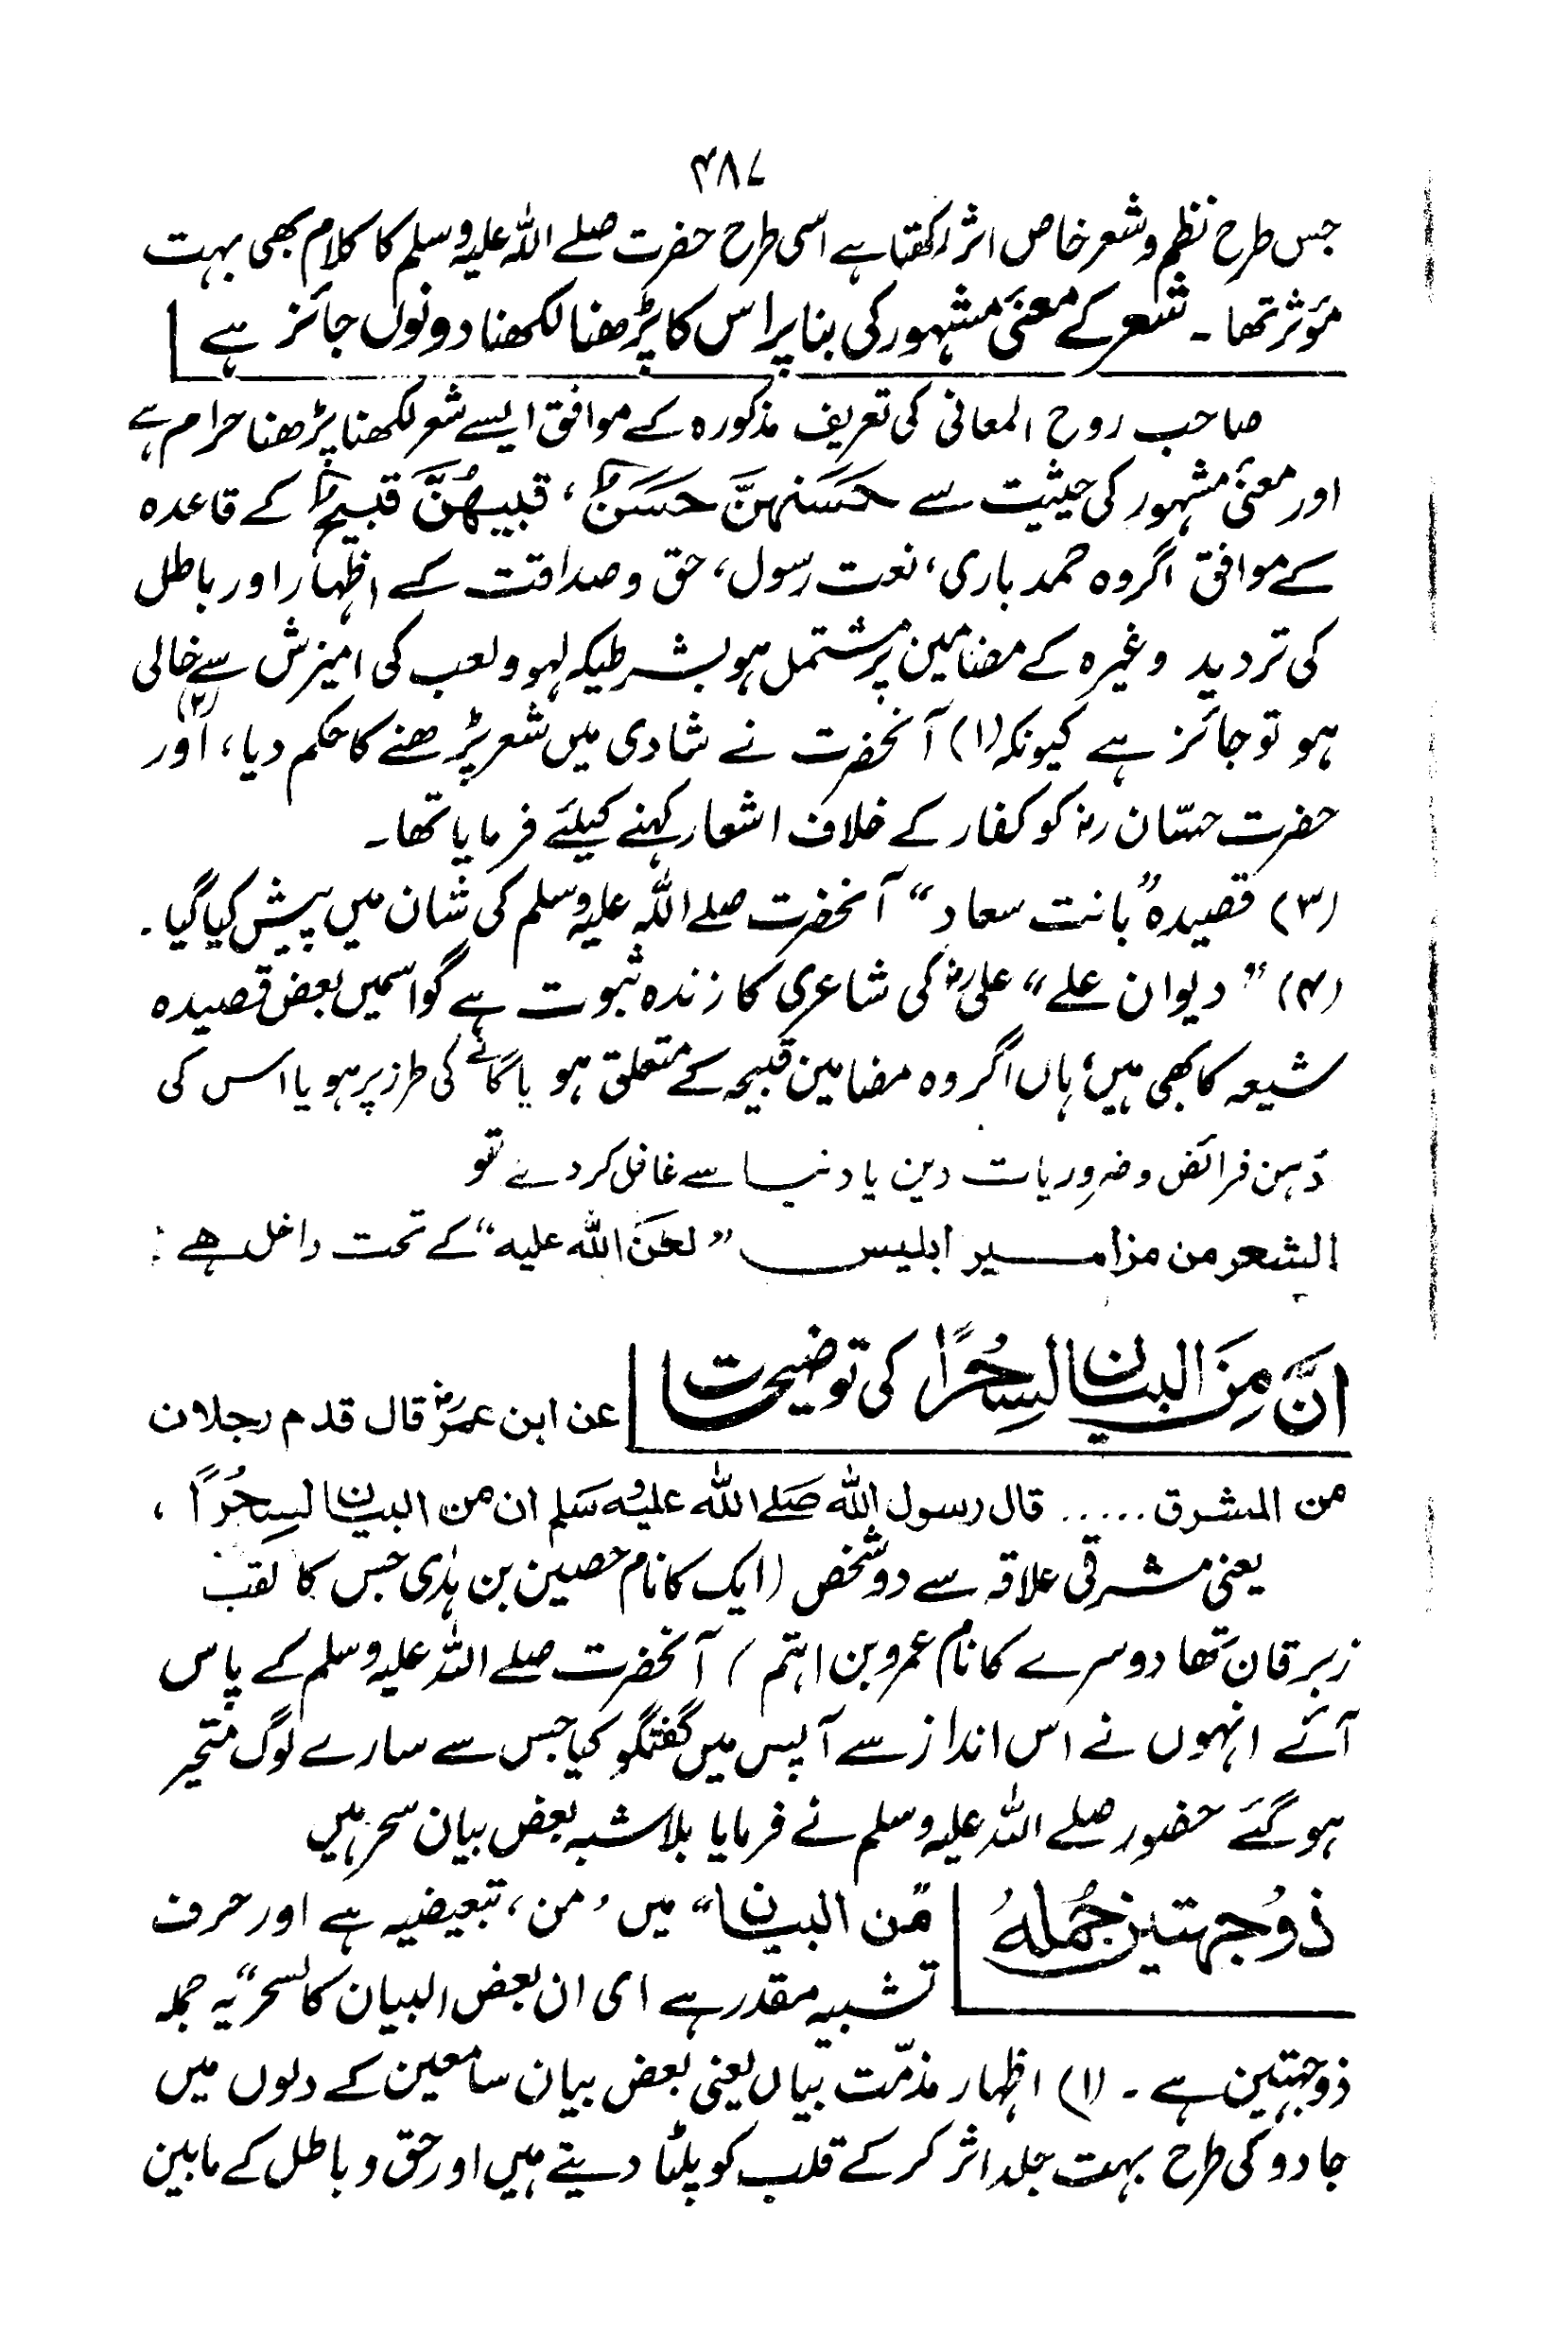 ۴۸۷
جس طرح نظم و شعر خاص اثر رکھتا ہے اسی طرح حضرت صلے اللہ علیہ وسلم کا کلام بھی بہت
مؤثر تھا ۔ شعر کے معنیٔ مشہور کی بنا پر اس کا پڑھنا لکھنا دونوں جائز ہے
صاحب روح المعانی کی تعریف مذکورہ کے موافق ایسے شعر لکھنا پڑھنا حرام ہے
اور معنیٔ مشہور کی حیثیت سے حَسَنہنَّ حَسَنٌ ، قبیھُنَّ قبیحٌ کے قاعدہ
کے موافق اگر وہ حمد باری ، نعت رسول ، حق و صداقت کے اظہار اور باطل
کی تردید وغیرہ کے مضامین پر مشتمل ہو بشرطیکہ لہو ولعب کی امیزش سے خالی
ہو تو جائز ہے کیونکہ (۱) آنحضرت نے شادی میں شعر پڑھنے کا حکم دیا ، (۲) اور
حضرت حسّان رضہ کو کفار کے خلاف اشعار کہنے کیلئے فرمایا تھا۔
(۳) قصیدہ ”بانت سعاد“ آنحضرت صلے اللہ علیہ وسلم کی شان میں پیش کیا گیا ۔
(۴) ”دیوان علے“ علی رضہ کی شاعری کا زندہ ثبوت ہے گو اسمیں بعض قصیدہ
شیعہ کا بھی ہیں؛ ہاں اگر وہ مضامین قبیحہ کے متعلق ہو یا گانے کی طرز پر ہو یا اس کی
دَہن فرائض و ضروریات دین یا دنیا سے غافل کر دے تو
الشعر من مزامیر ابلیس ”لعَنَ اللہ علیہ“ کے تحت داخل ہے :
انَّ مِنَ البیان لسِحُرًا کی توضیحات
عن ابن عمرؓ قال قدم رجلان
من المشرق ..... قال رسول اللہ صَلے اللہ علیُہ سَلم ان من البیان لسِحُرًا ،
یعنی مشرقی علاقہ سے دو شخص (ایک کا نام حصین بن ہدٰی جس کا لقب
زبرقان تھا دوسرے کا نام عمرو بن اہتم) آنحضرت صلے اللہ علیہ وسلم کے پاس
آئے انہوں نے اس انداز سے آپس میں گفتگو کیا جس سے سارے لوگ متحیر
ہو گئے حضور صلے اللہ علیہ وسلم نے فرمایا بلاشبہ بعض بیان سحر ہیں
ذوُجہتین جُملہُ
”من البیان“ میں ’من‘ تبعیضیہ ہے اور حرف
تشبیہ مقدر ہے ای ان بعض البیان کالسحر“ یہ جملہ
ذوجہتین ہے ۔ (۱) اظہار مذمّت بیاں یعنی بعض بیان سامعین کے دلوں میں
جادو کی طرح بہت جلد اثر کر کے قلب کو پلٹا دیتے ہیں اور حق و باطل کے مابین